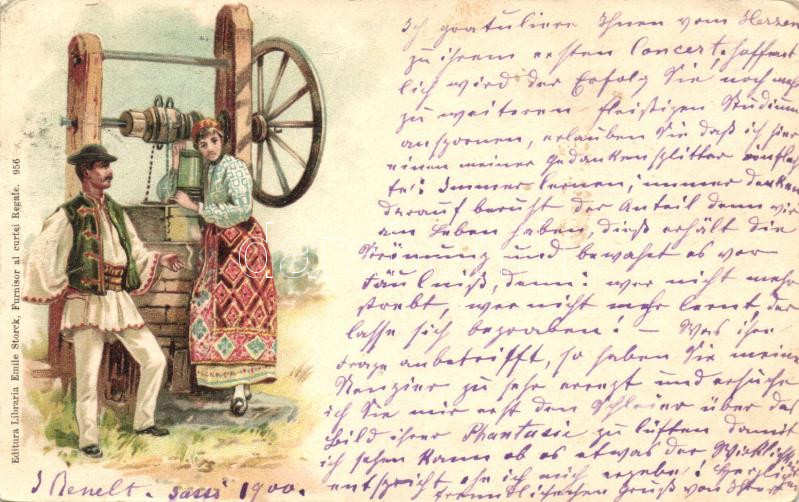 Ich gratuliere Ihnen vom Herzen
zu ihrem ersten Concert, hoffent
lich wird der Erfolg Sie noch mehr
zu weiteren fleißigen Studium
anspornen, erlauben Sie daß ich hier
einen meiner Gedankensplitter einflech
te: Immer lernen, immer denken
darauf beruht der Anteil denn wir
am Leben haben, dieß erhält die
Strömung und bewahrt es vor
Fäulniß, denn: wer nicht mehr
strebt, wer nicht mehr lernt, der
lasse sich begraben! – Was ihre
Frage anbetrifft, so haben Sie meine
Neugier zu sehr erregt und ersuche
ich Sie mir erst den Schleier über das
Bild ihrer Phantasie zu lüften damit
ich sehen kann ob es etwas der Wirklichk
entspricht, ehe ich mich ergebe! Herzlich
freundlichen Gruß von
1900.
Editura Libraria Emile Storck, Furnisor al curtei Regale. 956